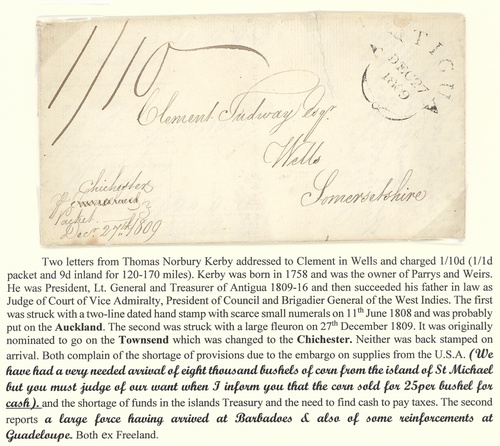 1/10
ANTIGUA
DEC 27
1809
Clement Tudway Esqr
Wells
Somersetshire
Chichester
Packet
Decr 27th 1809
Two letters from Thomas Norbury Kerby addressed to Clement in Wells and charged 1/10d (1/1d
packet and 9d inland for 120-170 miles). Kerby was born in 1758 and was the owner of Parrys and Weirs.
He was President, Lt. General and Treasurer of Antigua 1809-16 and then succeeded his father in law as
Judge of Court of Vice Admiralty, President of Council and Brigadier General of the West Indies. The first
was struck with a two-line dated hand stamp with scarce small numerals on 11th June 1808 and was probably
put on the Auckland. The second was struck with a large fleuron on 27th December 1809. It was originally
nominated to go on the Townsend which was changed to the Chichester. Neither was back stamped on
arrival. Both complain of the shortage of provisions due to the embargo on supplies from the U.S.A. (We
have had a very needed arrival of eight thousand bushels of corn from the island of St Michael
but you must judge of our want when I inform you that the corn sold for 25per bushel for
cash). and the shortage of funds in the islands Treasury and the need to find cash to pay taxes. The second
reports a large force having arrived at Barbadoes & also of some reinforcements at
Guadeloupe. Both ex Freeland.